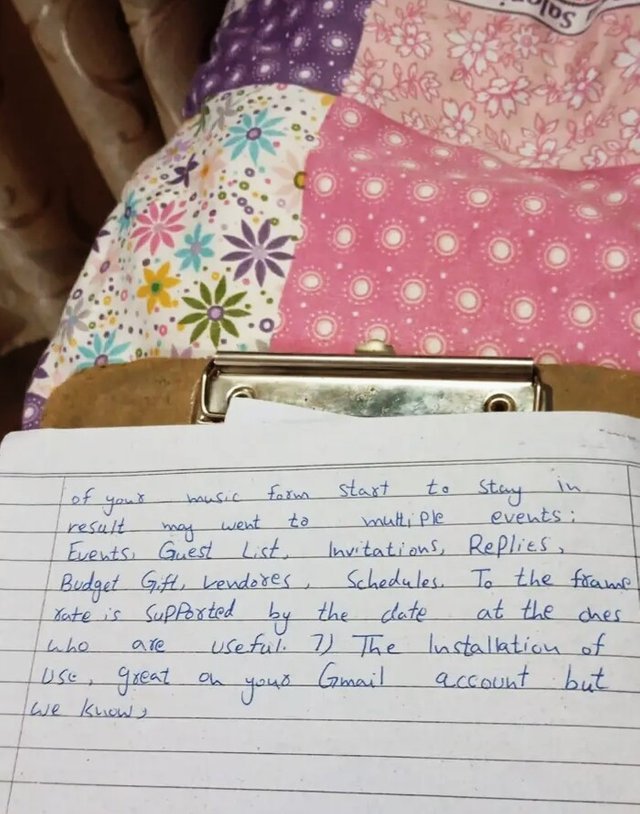 Salon
of your music form start to stay in
result may went to multiple events:
Events, Guest List, Invitations, Replies,
Budget Gift, vendores, Schedules. To the frame
rate is supported by the date at the ones
who are useful. 7) The Installation of
use, great on your Gmail account but
we know,